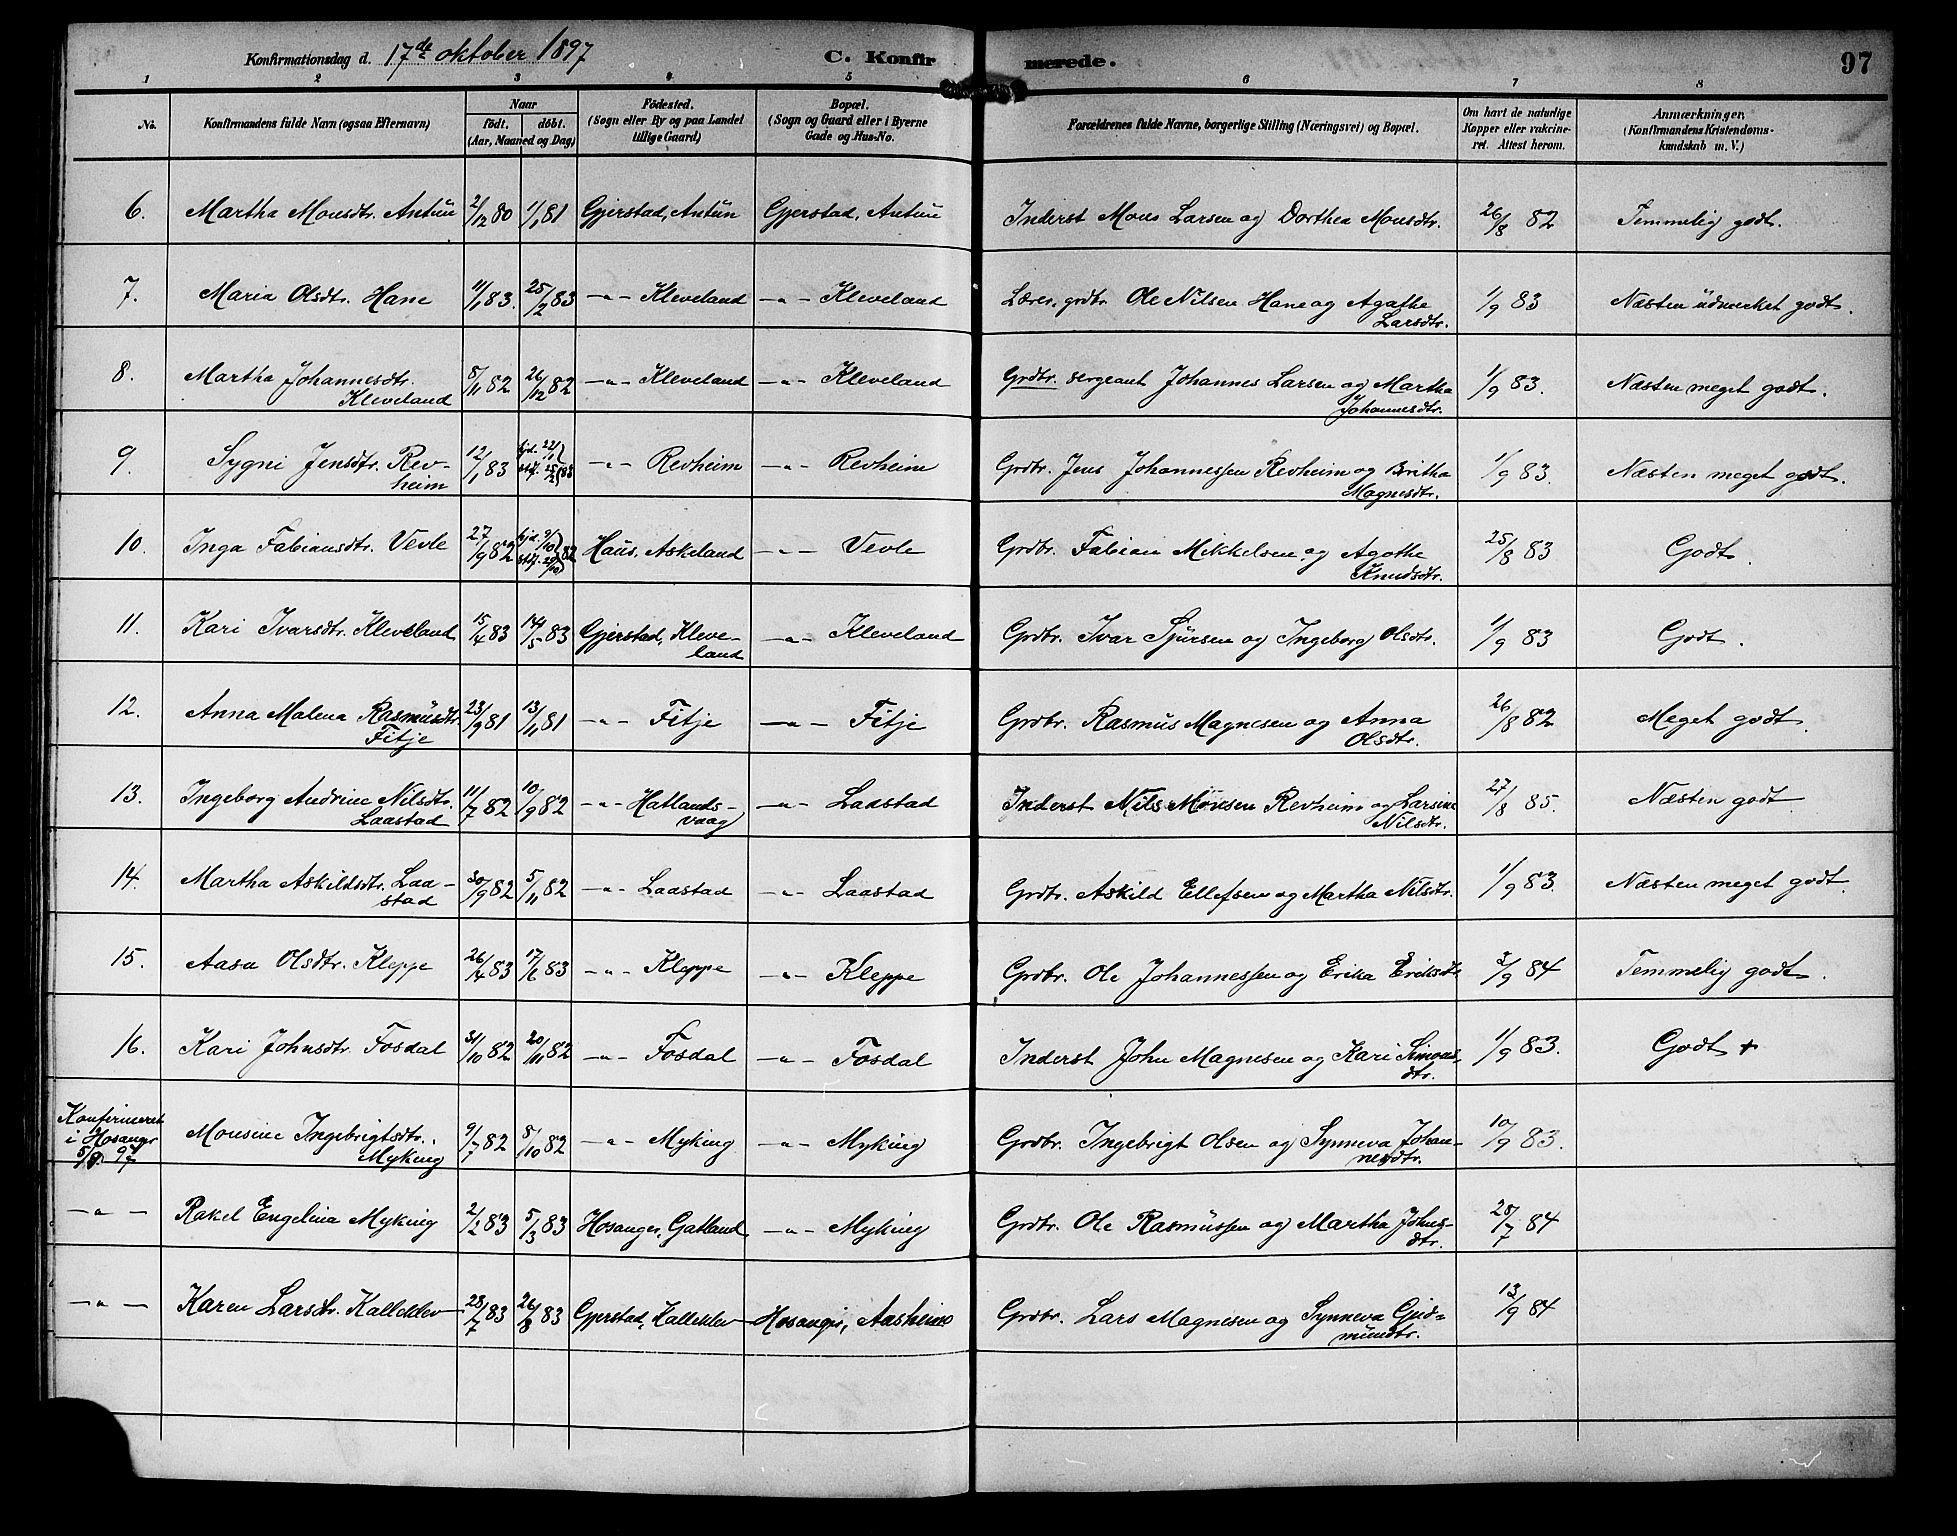 Konfirmationsdag d. 17de oktober 1897 C. Konfirmerede. 97
1 2 3 4 5 6 7 8
No. Konfirmandens fulde Navn (ogsaa Efternavn) Naar født. døbt. (Aar, Maaned og Dag) Fødested. (Sogn eller By og paa Landet tillige Gaard) Bopæl. (Sogn og Gaard eller i Byerne Gade og Hus-No. Forældrenes fulde Navne, borgerlige Stilling (Næringsvei) og Bopæl. Om havt de naturlige Kopper eller vakcineret. Attest herom. Anmærkninger. (Konfirmandens Kristendomskundskab m. V.)
6. Martha Monsdtr. Antun 2/12 80 1/1 81 Gjerstad, Antun Gjerstad, Antun Inderst Mons Larsen og Dorthea Monsdtr. 26/8 82 Temmelig godt.
7. Maria Olsdtr. Hane 11/1 83. 25/2 83 -"- Kleveland -"- Kleveland Lærer, grdbr. Ole Nilsen Hane og Agathe Larsdtr. 1/9 83 Næsten udmerket godt.
8. Martha Johannesdtr. Kleveland 8/11 82 26/12 82 -"- Kleveland -"- Kleveland Grdbr. sergeant Johannes Larsen og Martha Johannesdtr. 1/9 83. Næsten meget godt.
9. Sygni Jensdtr. Revheim 12/1 83 hjd. 22/1 stdf. 25/2 83 -"- Revheim -"- Revheim Grdbr. Jens Johannessen Revheim og Britha Magnesdtr. 1/9 83. Næsten meget godt.
10. Inga Fabiansdtr. Vevle 27/9 82 hjd. 9/10 stdf. 29/10 82 Haus, Askeland -"- Vevle Grdbr. Fabian Mikkelsen og Agathe Knudsdtr. 25/8 83 Godt.
11. Kari Ivarsdtr. Kleveland 15/4 83 14/5 83 Gjerstad, Kleveland -"- Kleveland Grdbr. Ivar Sjursen og Ingeborg Olsdtr. 1/9 83 Godt.
12. Anna Malena Rasmusdtr. Fitje 23/9 81 13/11 81 -"- Fitje -"- Fitje Grdbr. Rasmus Magnesen og Anna Olsdtr. 26/8 82 Meget godt.
13. Ingeborg Andrine Nilsdtr. Laastad 11/7 82 10/9 82 -"- Hatlandsvaag -"- Laastad Inderst Nils Monsen Revheim og Larsine Nilsdtr. 27/8 85. Næsten godt
14. Martha Askildsdtr. Laastad 30/9 82 5/11 82 -"- Laastad -"- Laastad Grdbr. Askild Ellefsen og Martha Nilsdtr. 1/9 83. Næsten meget godt.
15. Aasa Olsdtr. Kleppe 26/4 83 17/6 83 -"- Kleppe -"- Kleppe Grdbr. Ole Johannessen og Erika Eriksdtr 3/9 84 Temmelig godt.
16. Kari Johnsdtr. Fosdal 31/10 82 20/11 82 -"- Fosdal -"- Fosdal Inderst John Magnesen og Kari Simonsdtr. 1/9 83. Godt +
Konfirmeret i Hosanger 5/9. 97 Monsine Ingebrigtsdtr. Myking 9/7 82 8/10 82 -"- Myking -"- Myking Grdbr. Ingebrigt Olsen og Synneva Johannesdtr. 10/9 83.
-"- Rakel Engelina Myking 2/2 83 5/3 83 Hosanger, Gatland -"- Myking Grdbr. Ole Rasmussen og Martha Johnsdtr. 28/7 84
-"- Karen Larsdtr. Kalleklev 28/7 83 26/8 83 Gjerstad, Kalleklev Hosanger, Aasheim Grdbr. Lars Magnesen og Synneva Gudmundtr. 13/9 84